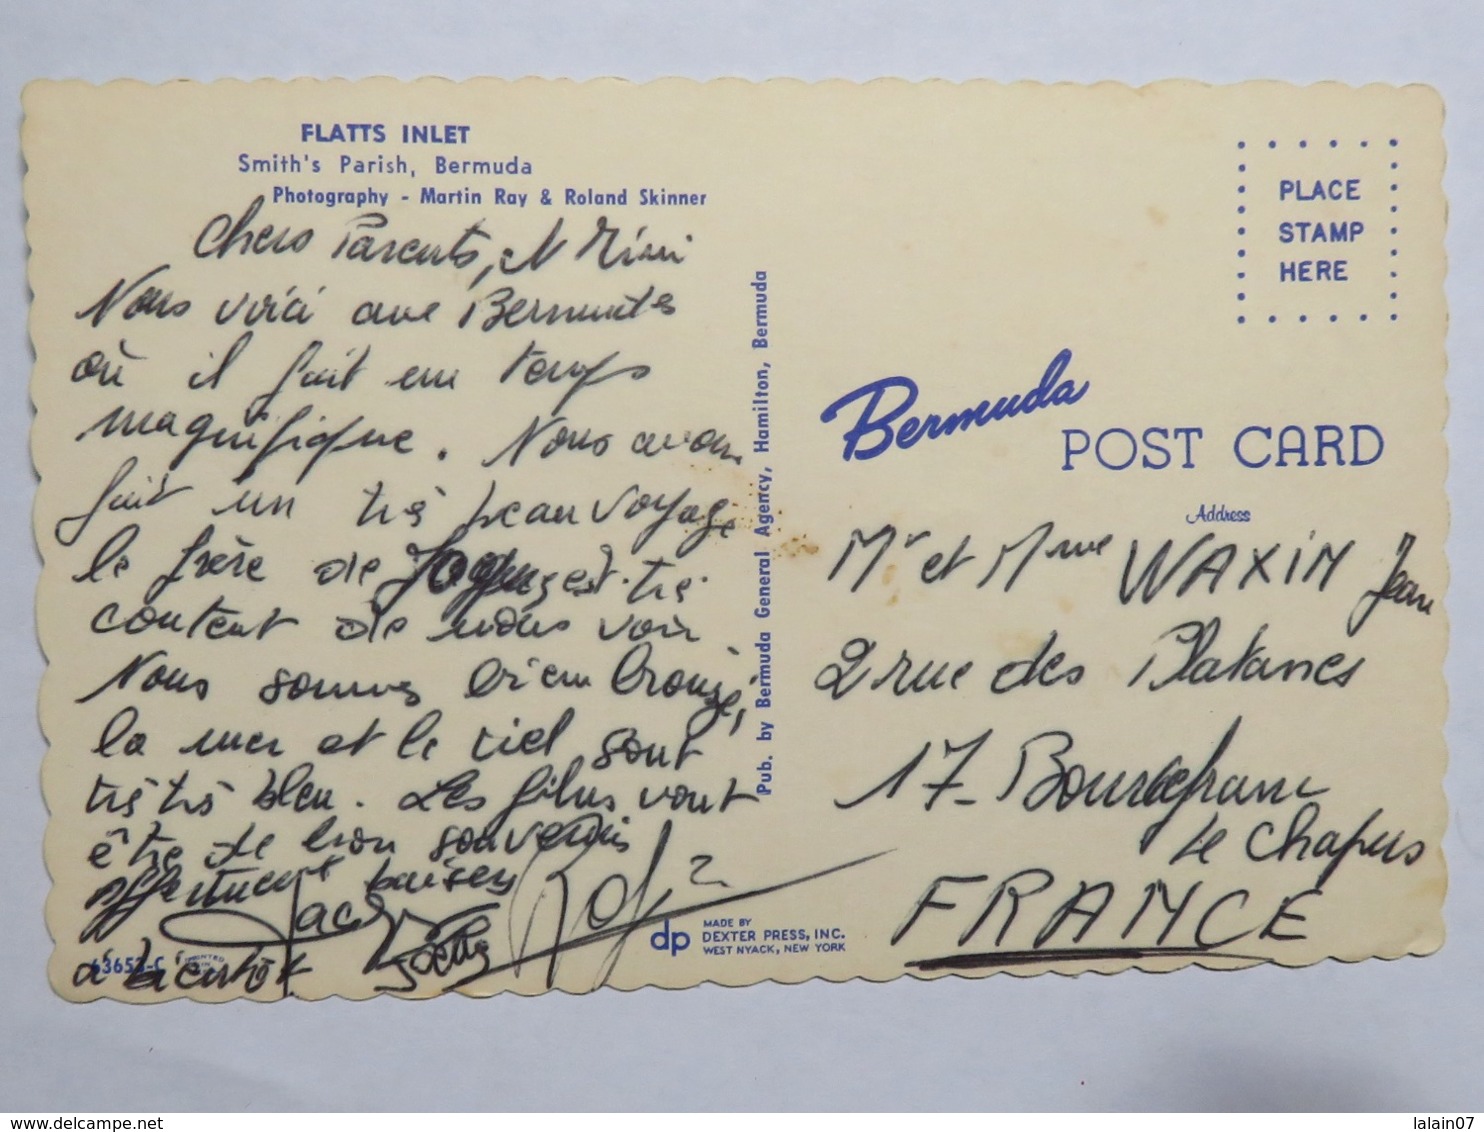 FLATTS INLET
Smith's Parish, Bermuda
Photography - Martin Ray & Roland Skinner
Chers Parents, et Mimi
Nous voici aux Bermudes
où il fait un temps
magnifique. Nous avons
fait un très beau voyage
le frère de est très
content de nous voir
Nous sommes bien bronzé,
la mer et le ciel sont
très très bleu. Les films vont
être de bon souvenirs
affectueux baisers
à bientôt
63653-C
Pub. by Bermuda General Agency, Hamilton, Bermuda
dp
MADE BY
DEXTER PRESS, INC.
WEST NYACK, NEW YORK
PLACE
STAMP
HERE
Bermuda
POST CARD
Address
Mr et Mme WAXIN Jean
2 rue des Platanes
17- Bourcefranc
Le Chapus
FRANCE
www.delcampe.net
lalain07